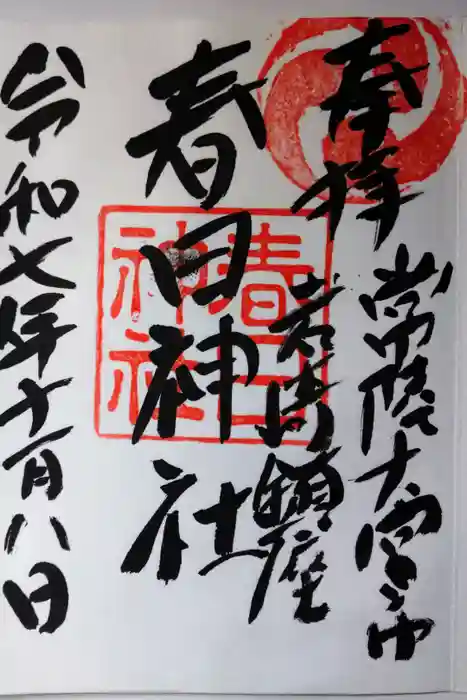 奉拝
常陸大宮市
岩崎鎮座
春日神社
春日
神社
令和七年十一月八日